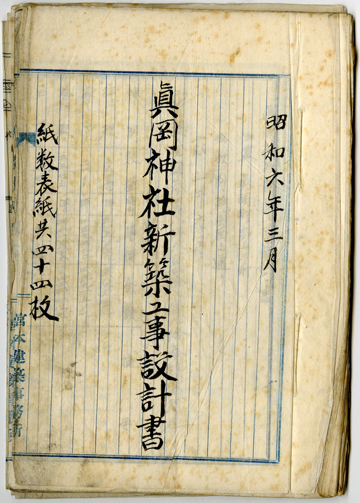 昭和六年三月
眞岡神社新築工事設計書
紙数表紙共四十四枚
建築事務所